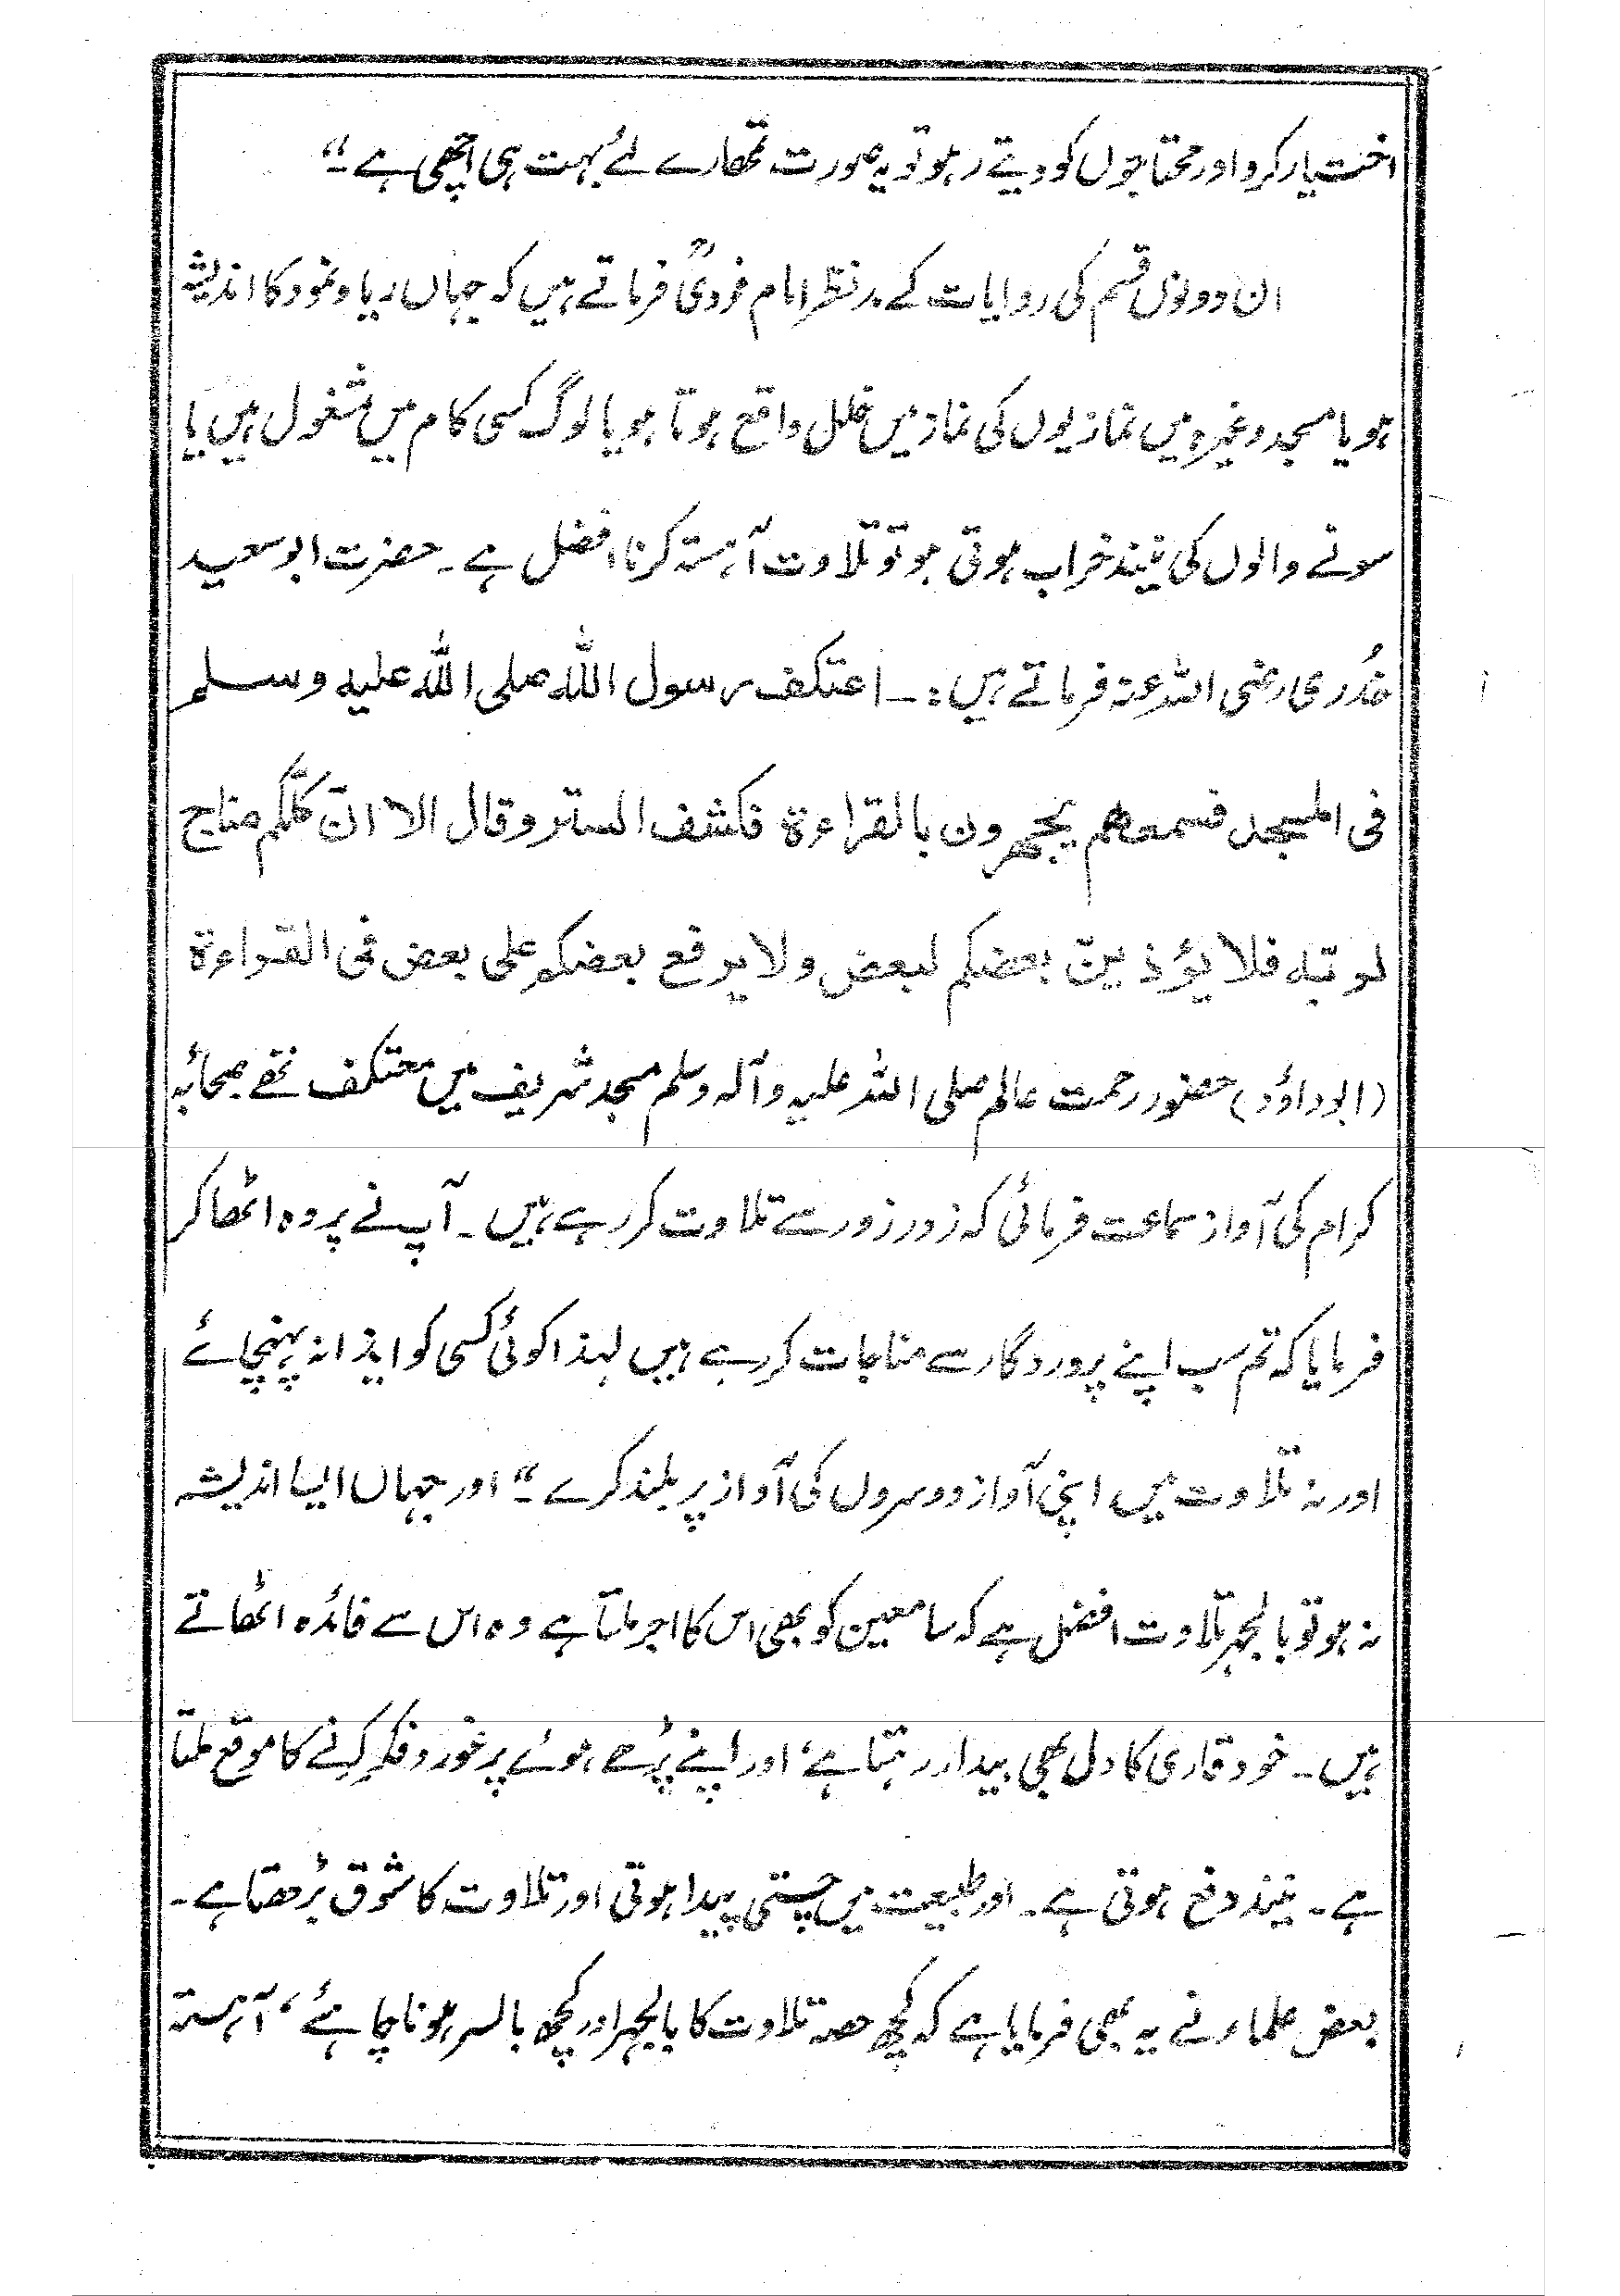 اختیار کرو اور محتاجوں کو دیتے رہو تو یہ صورت تمھارے لئے بہت ہی اچھی ہے"
ان دونوں قسم کی روایات کے مدنظر امام نوویؒ فرماتے ہیں کہ جہاں ریا ونمود کا اندیشہ
ہو یا مسجد وغیرہ میں نمازیوں کی نماز میں خلل واقع ہوتا ہو یا لوگ کسی کام میں مشغول ہیں یا
سونے والوں کی نیند خراب ہوتی ہو تو تلاوت آہستہ کرنا افضل ہے۔ حضرت ابوسعید
خُدری رضی اللہ عنہ فرماتے ہیں:۔ اعتکف رسول اللہ صلی اللہ علیہ وسلم
فی المسجد فسمعھم یجھرون بالقراءۃ فکشف الستر وقال الا انّ کلّکم مناج
لوتبہ فلا یؤذینّ بعضکم لبعض ولا یرفع بعضکم علی بعض فی القراءۃ
(ابوداؤد) حضور رحمت عالم صلی اللہ علیہ وآلہ وسلم مسجد شریف میں معتکف تھے صحابہ
کرام کی آواز سماعت فرمائی کہ زور زور سے تلاوت کر رہے ہیں۔ آپ نے پردہ اٹھا کر
فرمایا کہ تم سب اپنے پروردگار سے مناجات کر رہے ہیں لہذا کوئی کسی کو ایذا نہ پہنچائے
اور نہ تلاوت میں اپنی آواز دوسروں کی آواز پر بلند کرے"۔ اور جہاں ایسا اندیشہ
نہ ہو تو بالجہر تلاوت افضل ہے کہ سامعین کو بھی اس کا اجر ملتا ہے وہ اس سے فائدہ اٹھاتے
ہیں۔ خود قاری کا دل بھی بیدار رہتا ہے، اور اپنے پڑھے ہوئے پر غور وفکر کرنے کا موقع ملتا
ہے۔ نیند دفع ہوتی ہے۔ اور طبیعت میں چستی پیدا ہوتی اور تلاوت کا شوق بڑھتا ہے۔
بعض علماء نے یہ بھی فرمایا ہے کہ کچھ حصہ تلاوت کا بالجہر اور کچھ بالسر ہونا چاہئے، آہستہ